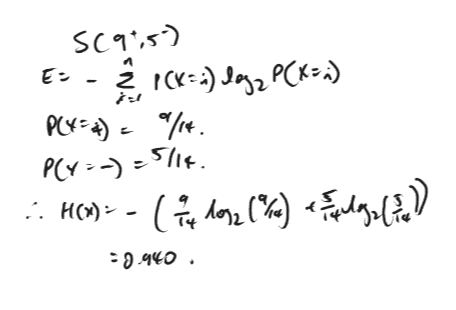 S(9⁺,5⁻)
E = - Σ_{i=1}^{n} P(X=i) log₂ P(X=i)
P(X=+) = 9/14.
P(X=-) = 5/14.
∴ H(X) = - (9/14 log₂(9/14) + 5/14 log₂(5/14))
= 0.940.